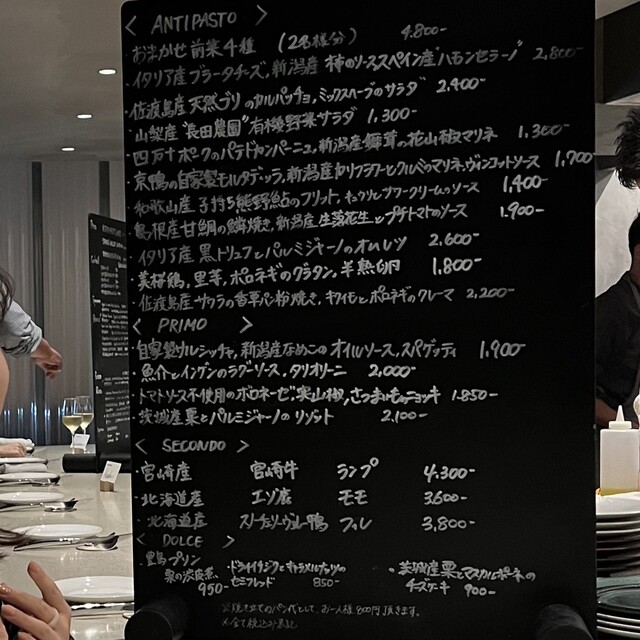 < ANTIPASTO >
おまかせ 前菜4種 (2名様分) 4.800-
・イタリア産ブラータチーズ、新潟産 柿のソース スペイン産"ハモンセラーノ" 2,800-
・佐渡島産 天然ブリのカルパッチョ、ミックスハーブのサラダ 2.400-
・山梨産"長田農園"有機野菜サラダ 1.300-
・四万十ポークのパテドカンパーニュ、新潟産 茸の花山椒マリネ 1,300-
・京鴨の自家製モルタデッラ、新潟産カリフラワーとクルミのマリネ、ヴィンコットソース 1,700-
・和歌山産 子持ち熊野鮎のフリット、サワークリームのソース 1,400-
・島根産甘鯛の鱗焼き、新潟産 生落花生とプチトマトのソース 1.900-
・イタリア産 黒トリュフとパルミジャーノのオムレツ 2.600-
・美桜鶏、里芋、ポロネギのグラタン、半熟卵 1,800-
・佐渡島産 サワラの香草パン粉焼き、キクイモとポロネギのクレーマ 2,200-
< PRIMO >
・自家製サルシッチャ、新潟産なめこの オイルソース、スパゲッティ 1,900-
・魚介とインゲンのラグーソース、タリオリーニ 2,000-
・トマトソース不使用のボロネーゼ、実山椒、さつまいものニョッキ 1.850-
・茨城産栗とパルミジャーノのリゾット 2,100-
< SECONDO >
・宮崎産 宮崎牛 ランプ 4,300-
・北海道産 エゾ鹿 モモ 3600-
・北海道産 スノーチェリーヴァレー鴨 フィレ 3,800-
< DOLCE >
・黒烏プリン 栗の渋皮煮 950-
・ドライイチジクとキャラメルナッツのセミフレッド 850-
・茨城産栗とマスカルポーネのチーズケーキ 900-
※焼き立てのパン代として、お一人様800円頂きます。
※全て税込み表記